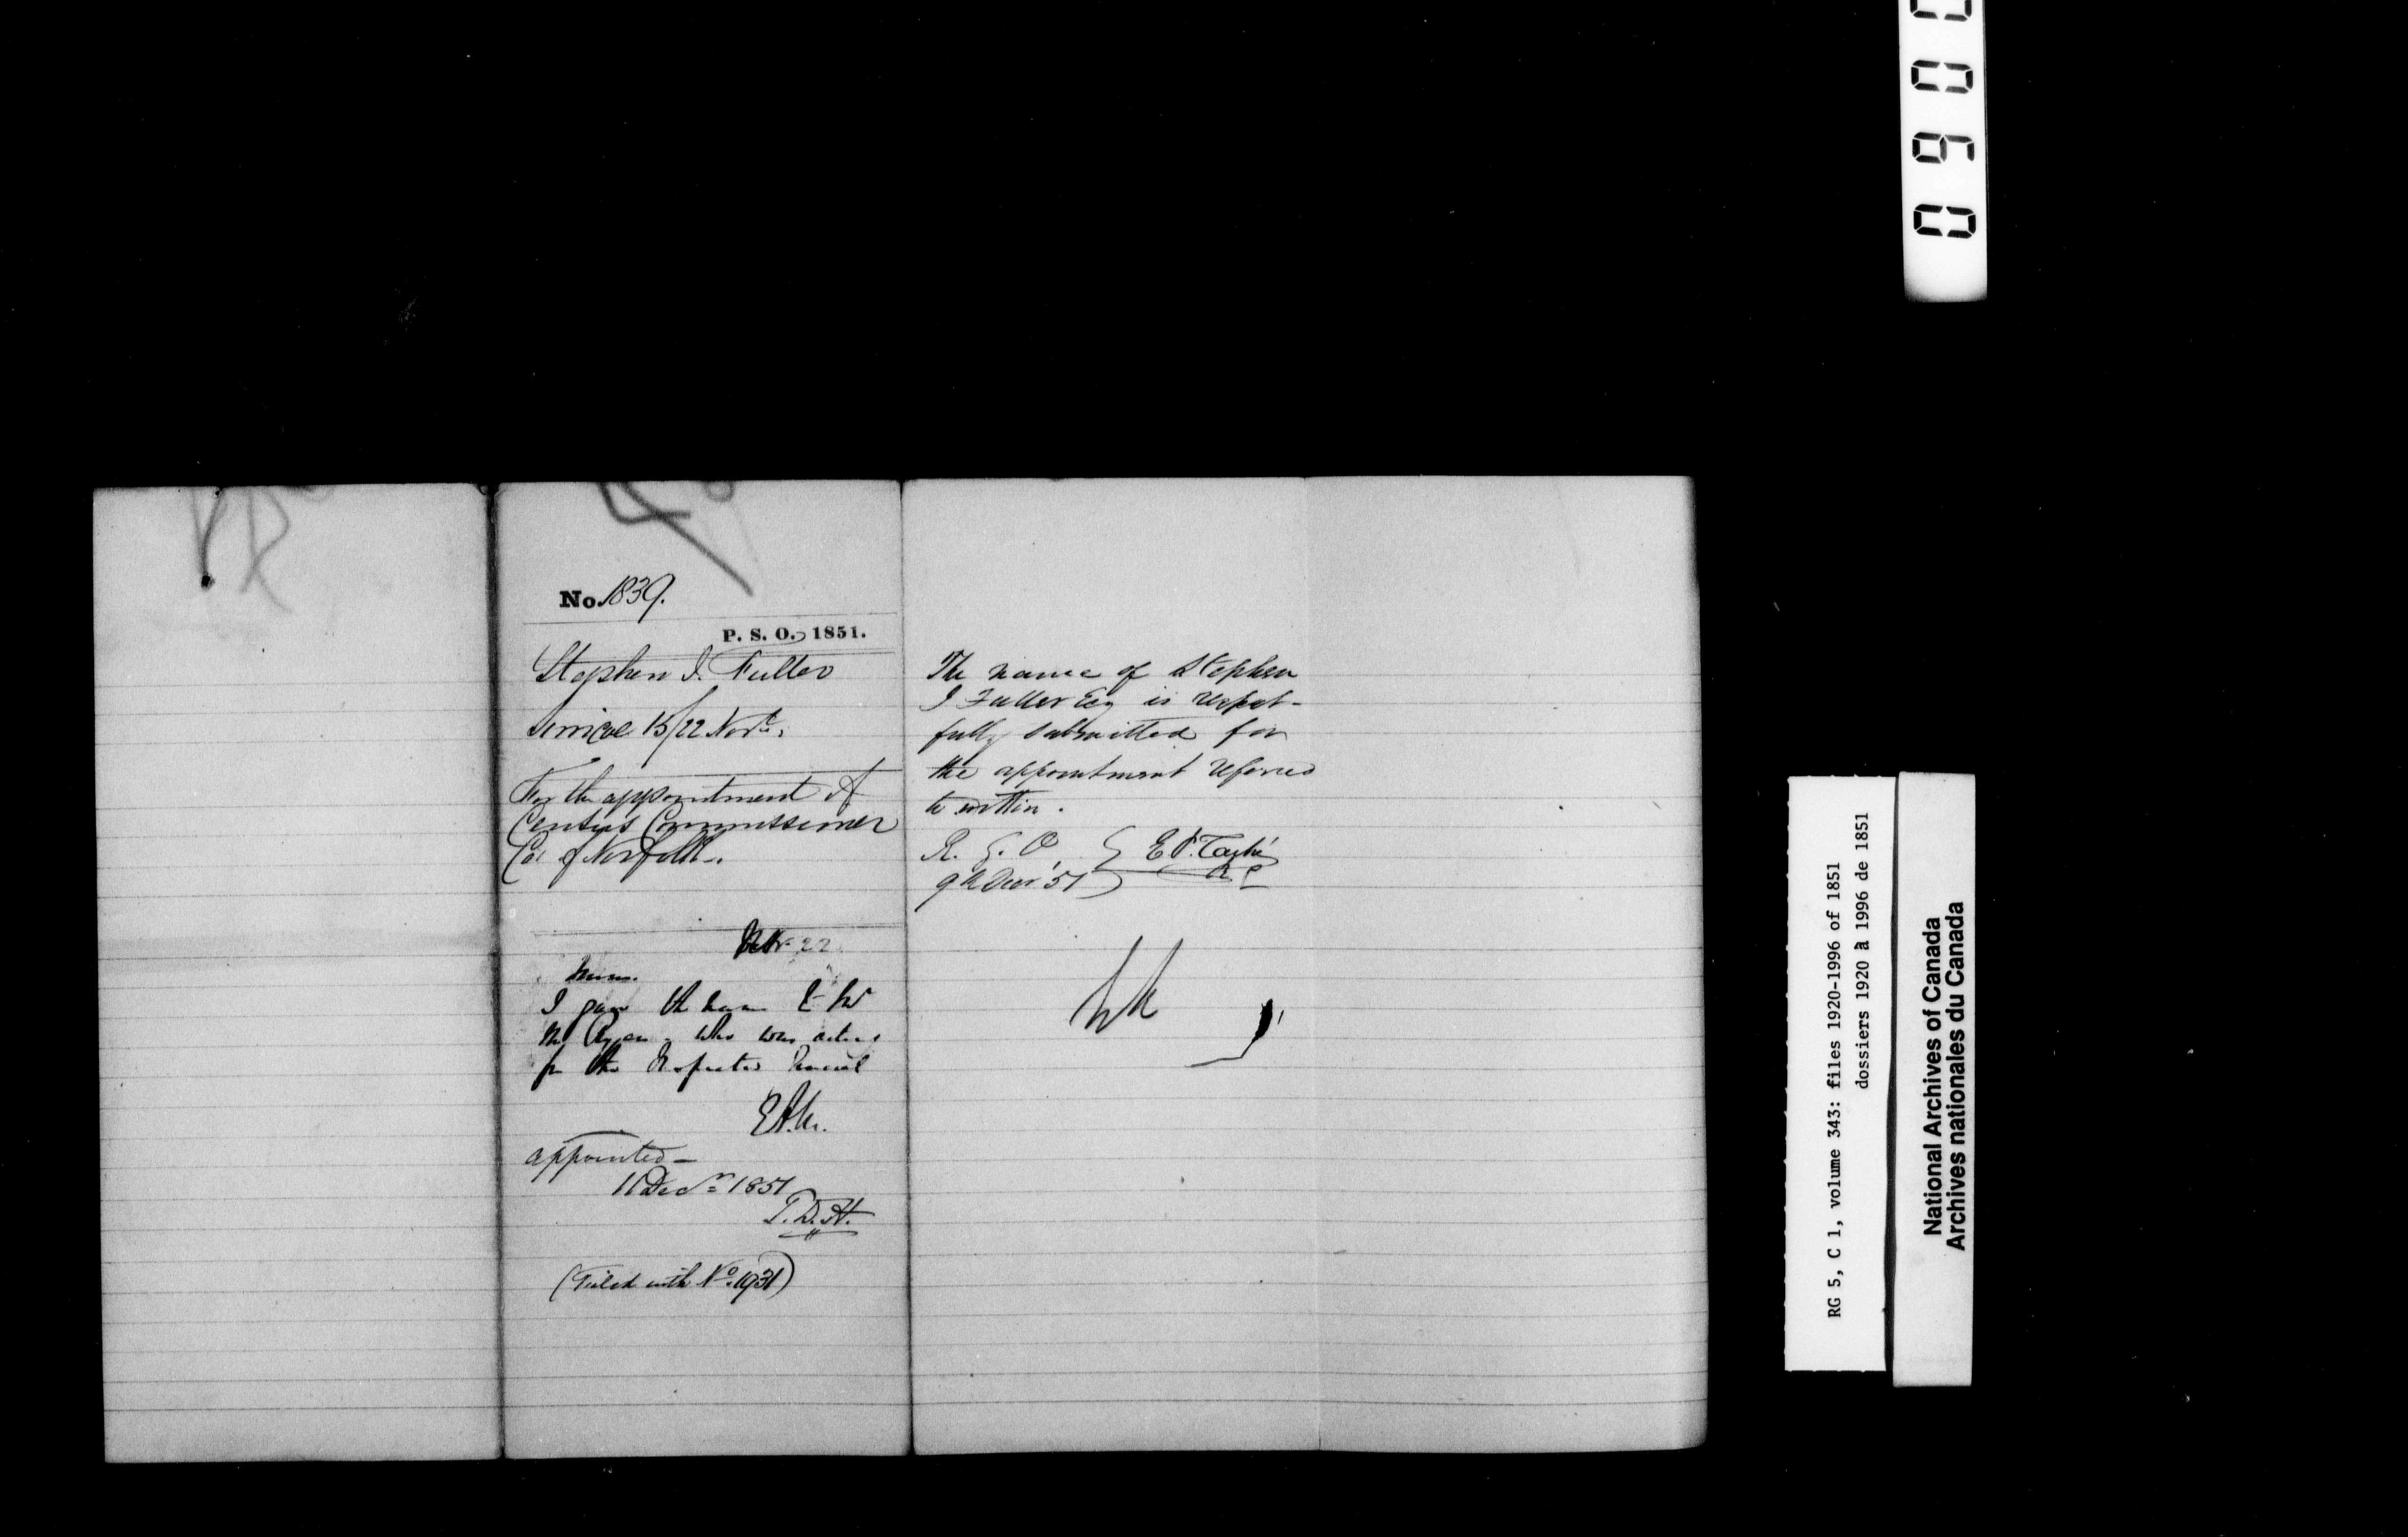 No. 1839.
P. S. O., 1851.
Stephen J. Fuller
Simcoe 15/22 Novr.
For the appointment of
Census Commissioner
Co: of Norfolk.
Novr 22
I gave the name to Mr
who was acting
for the Inspector General
E.A.M.
appointed —
11 Decr 1851
T.D.H.
(Filed with No. 1931)
The name of Stephen
J Fuller Esq is respect-
fully submitted for
the appointment referred
to within.
R. G. O
9th Decr '51
E P. Taché
R G
RG 5, C 1, volume 343: files 1920-1996 of 1851
dossiers 1920 à 1996 de 1851
National Archives of Canada
Archives nationales du Canada